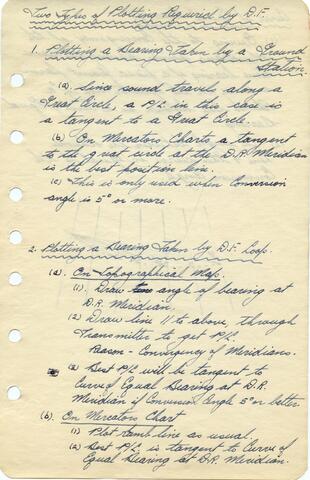 Two Types of Plotting Required by D.F.
1. Plotting a Bearing Taken by a Ground
Station.
(a) Since sound travels along a
Great Circle, a P/L in this case is
a tangent to a Great Circle.
(b) On Mercators Charts a tangent
to the great circle at the D.R. Meridian
is the best position line.
(c) This is only used when Conversion
angle is 5° or more.
2. Plotting a Bearing Taken by D.F. Loop.
(a). On Topographical Map.
(1). Draw angle of bearing at
D.R. Meridian.
(2) Draw line // to above through
Transmitter to get P/L.
Reason - Convergency of Meridians.
(3) Best P/L will be tangent to
Curve of Equal Bearing at D.R.
Meridian if Conversion Angle 5° or better
(b). On Mercators Chart
(1) Plot rumb line as usual.
(2) Best P/L is tangent to Curve of
Equal Bearing at D.R. Meridian.